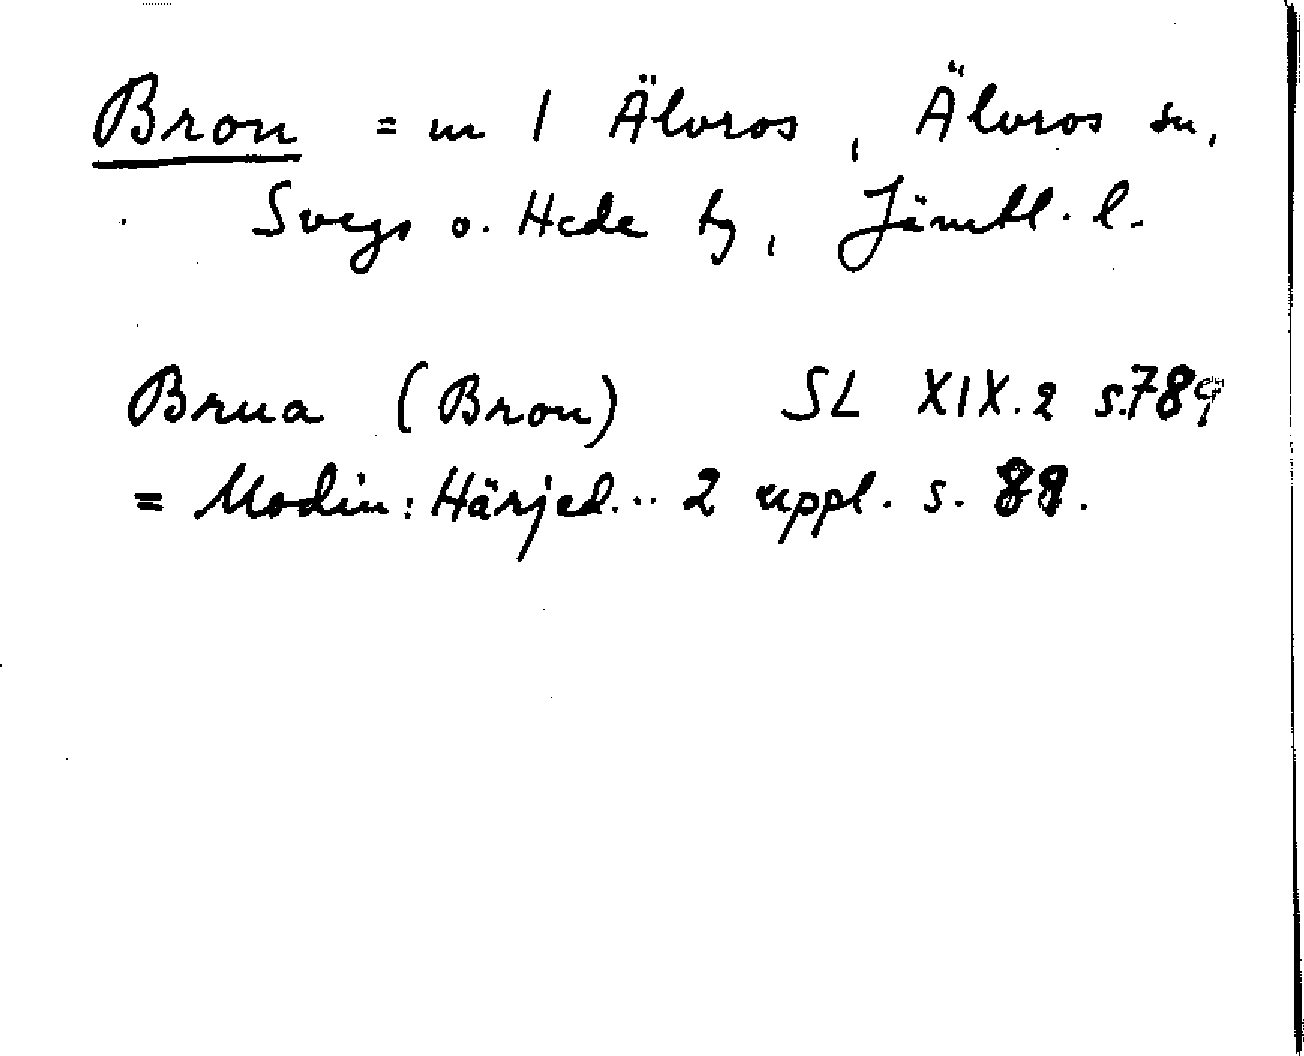 Bron = m 1 Älvros, Älvros sn,
Svegs o. Hede tg, Jämtl. l.
Brua (Bron) SL XIX.2 s.789
= Modin: Härjed... 2 uppl. s. 89.